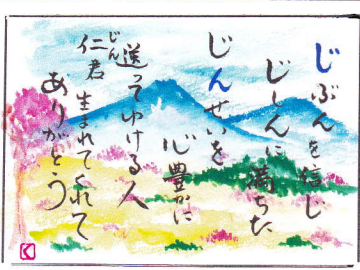 じぶんを信じ
じしんに満ちた
じんせいを
心豊かに
送ってゆける人
仁君
じん
生まれてくれて
ありがとう